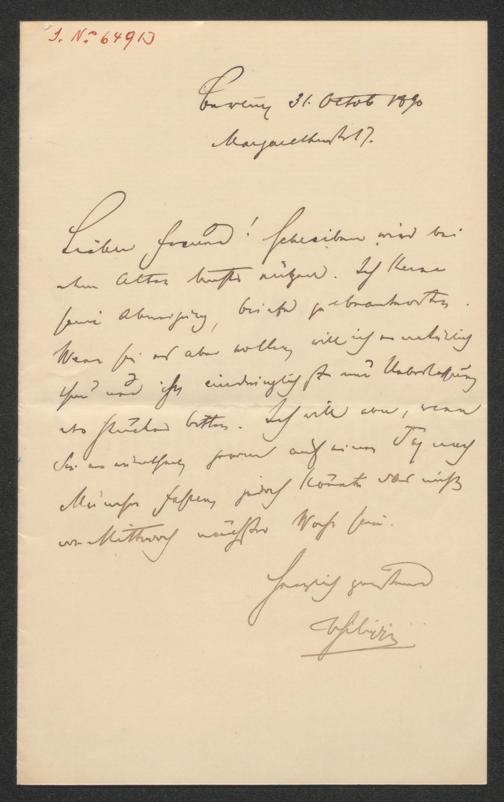 I. No 64913
31. Octob 1890
Margarethenstr 17.
Lieber Freund! Schreiben wird bei
dem Alten nichts nützen. Ich kenne
seine Abneigung, Briefe zu beantworten.
Wenn Sie es aber wollen, will ich es natürlich
thun und ihn eindringlich um Überlassung
des Stückes bitten. Ich will aber, wenn
Sie es wünschen, gerne auf einen Tag nach
München fahren, jedoch könnte das nicht
vor Mittwoch nächster Woche sein.
Herzlich grüssend